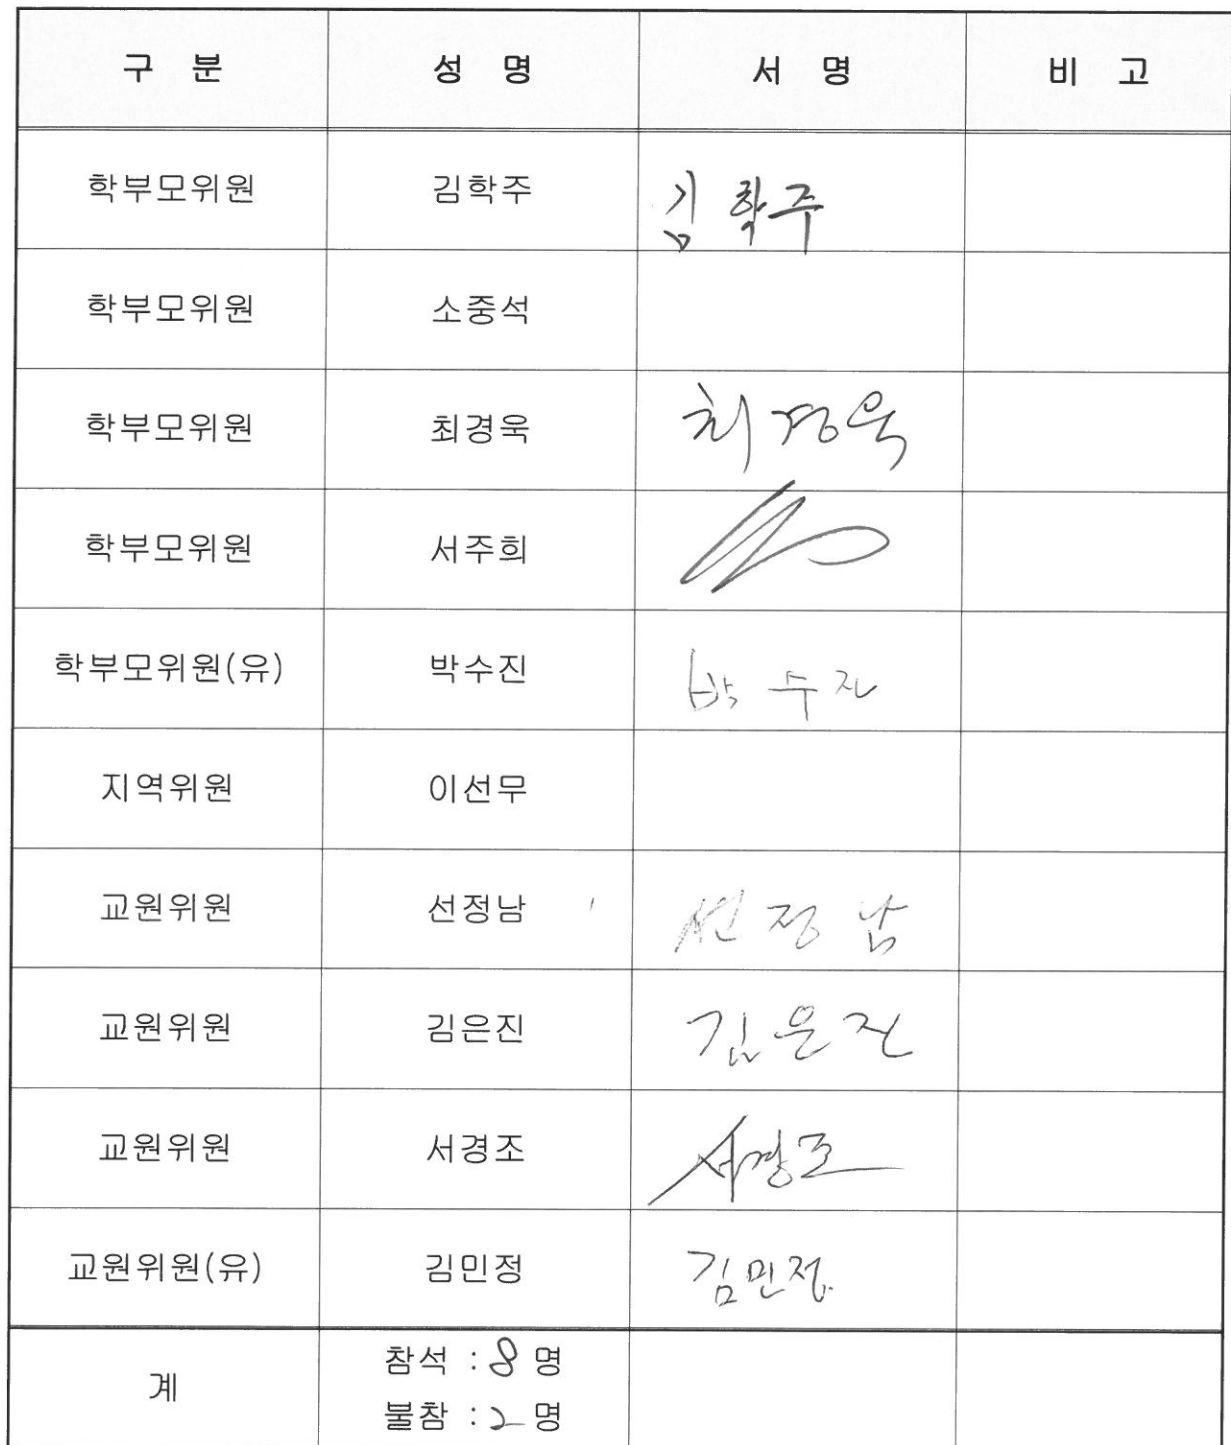 구 분 성 명 서 명 비 고
학부모위원 김학주 김학주
학부모위원 소중석
학부모위원 최경욱 최경욱
학부모위원 서주희
학부모위원(유) 박수진 박수진
지역위원 이선무
교원위원 선정남 선정남
교원위원 김은진 김은진
교원위원 서경조 서경조
교원위원(유) 김민정 김민정
계 참석 : 8 명
불참 : 2 명